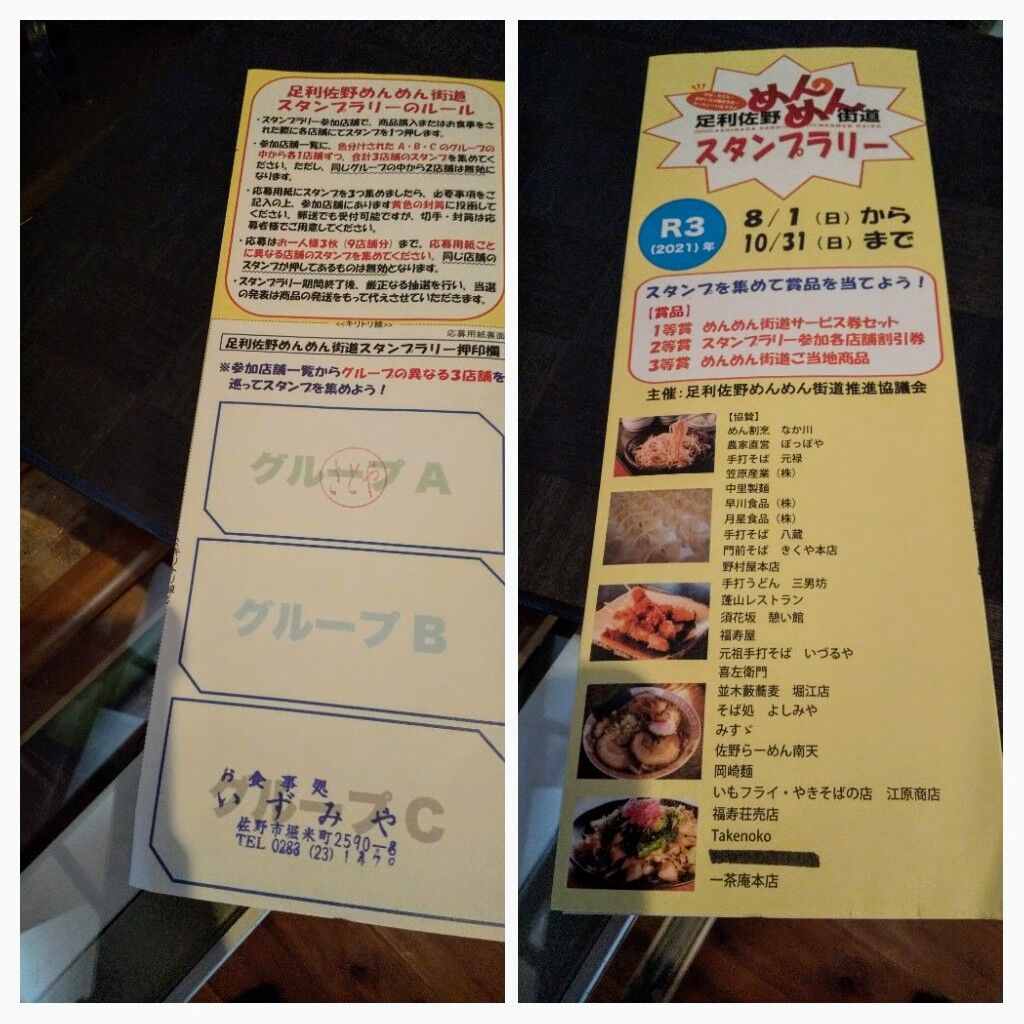 足利佐野めんめん街道
スタンプラリーのルール
・スタンプラリー参加店舗で、商品購入またはお食事をさ
れた際に各店舗にてスタンプを1つ押します。
・参加店舗一覧に、色分けされた A・B・C のグループの
中から各1店舗ずつ、合計3店舗のスタンプを集めてく
ださい。ただし、同じグループの中から2店舗は無効に
なります。
・応募用紙にスタンプを3つ集めましたら、必要事項をご
記入の上、参加店舗にあります黄色の封筒に投函して
ください。郵送でも受付可能ですが、切手・封筒は応
募者様でご用意してください。
・応募はお一人様3枚（9店舗分）まで。応募用紙ごと
に異なる店舗のスタンプを集めてください。同じ店舗の
スタンプが押してあるものは無効となります。
・スタンプラリー期間終了後、厳正なる抽選を行い、当選
の発表は商品の発送をもって代えさせていただきます。
<<キリトリ線>>
応募用紙裏面
足利佐野めんめん街道スタンプラリー押印欄
※参加店舗一覧からグループの異なる3店舗を
巡ってスタンプを集めよう！
グループ A
さとや
グループ B
グループ C
お食事処
いずみや
佐野市堀米町2590-8
TEL 0283 (23) 1470
足利佐野めんめん街道
ASHIKAGA SANO MENMEN KAIDO
スタンプラリー
R3
(2021) 年
8/1（日）から
10/31（日）まで
スタンプを集めて賞品を当てよう！
【賞品】
1等賞 めんめん街道サービス券セット
2等賞 スタンプラリー参加各店舗割引券
3等賞 めんめん街道ご当地商品
主催：足利佐野めんめん街道推進協議会
【協賛】
めん割烹 なか川
農家直営 ぽっぽや
手打そば 元禄
笠原産業（株）
中里製麺
早川食品（株）
月星食品（株）
手打そば 八蔵
門前そば きくや本店
野村屋本店
手打うどん 三男坊
蓬山レストラン
須花坂 憩い館
福寿屋
元祖手打そば いづるや
喜左衛門
並木藪蕎麦 堀江店
そば処 よしみや
みすゞ
佐野らーめん南天
岡崎麺
いもフライ・やきそばの店 江原商店
福寿荘売店
Takenoko
一茶庵本店